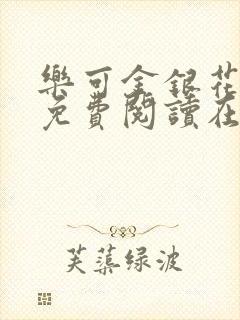 樂可金銀花
免費閱讀在
芙蕖绿波